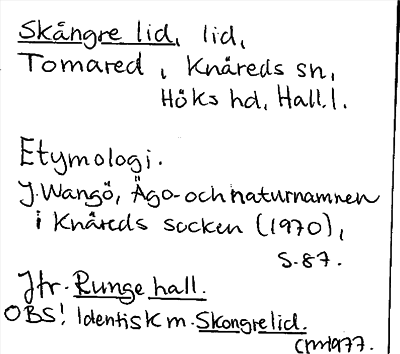 Skångre lid, lid,
Tomared, Knäreds sn,
Höks hd, Hall.l.
Etymologi.
J. Wangö, Ägo- och naturnamnen
i Knäreds socken (1970),
s. 87.
Jfr. Runge hall.
OBS! Identisk m. Skongrelid.
CM 1977.